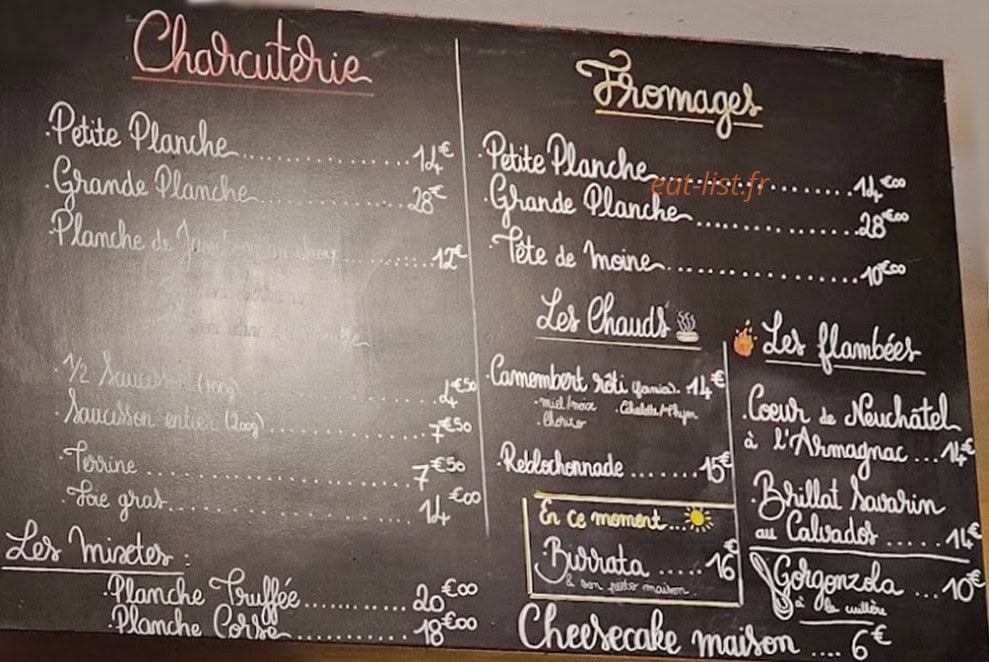 Charcuterie
· Petite Planche .............. 14€
· Grande Planche ............ 28€
· Planche de ........ 12€
· 1/2 Saucisson (100g) .............. 4€50
· Saucisson entier (200g) ............ 7€50
· Terrine .................... 7€50
· Foie gras .................. 14€00
Les Mixtes :
· Planche Truffée ........... 20€00
· Planche Corse ............ 18€00
Fromages
· Petite Planche .............. 14€00
eat-list.fr
· Grande Planche ............ 28€00
· Tête de Moine ............... 10€00
Les Chauds
· Camembert rôti . 14€
· miel/noix · Echalotte/Thym
· Chorizo
· Reblochonnade ....... 15€
En ce moment ...
· Burrata ..... 16€
& son pesto maison .
Les flambées
· Coeur de Neuchâtel
à l'Armagnac ... 14€
· Brillat Savarin
au Calvados ..... 14€
Gorgonzola ... 10€
à la cuillère
Cheesecake maison .... 6€